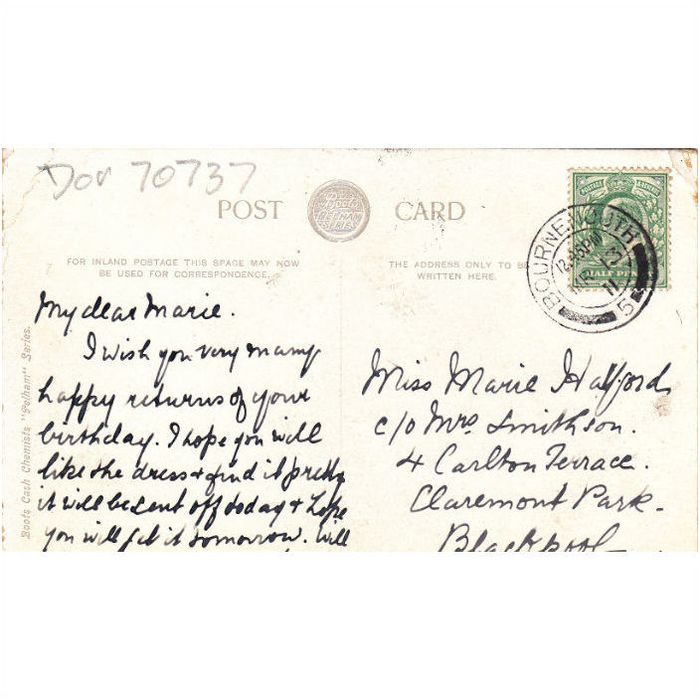 Dor 70737
POST CARD
PELHAM SERIES
FOR INLAND POSTAGE THIS SPACE MAY NOW
BE USED FOR CORRESPONDENCE.
THE ADDRESS ONLY TO B
WRITTEN HERE.
POSTAGE & REVENUE
HALF PEN
BOURNEMOUTH
12.45PM
12
11
5
Boots Cash Chemists "Pelham" Series.
My dear Marie.
I wish you very many
happy returns of your
birthday. I hope you will
like the dress & find it pretty
it will be sent off today & hope
you will get it tomorrow. Will
Miss Marie Halford
c/o Mrs Smithson.
4 Carlton Terrace.
Claremont Park.
Blackpool